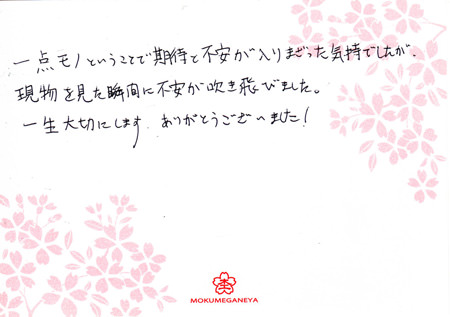 一点モノということで期待と不安が入りまざった気持でしたが、
現物を見た瞬間に不安が吹き飛びました。
一生大切にします。ありがとうございました！
MOKUMEGANEYA